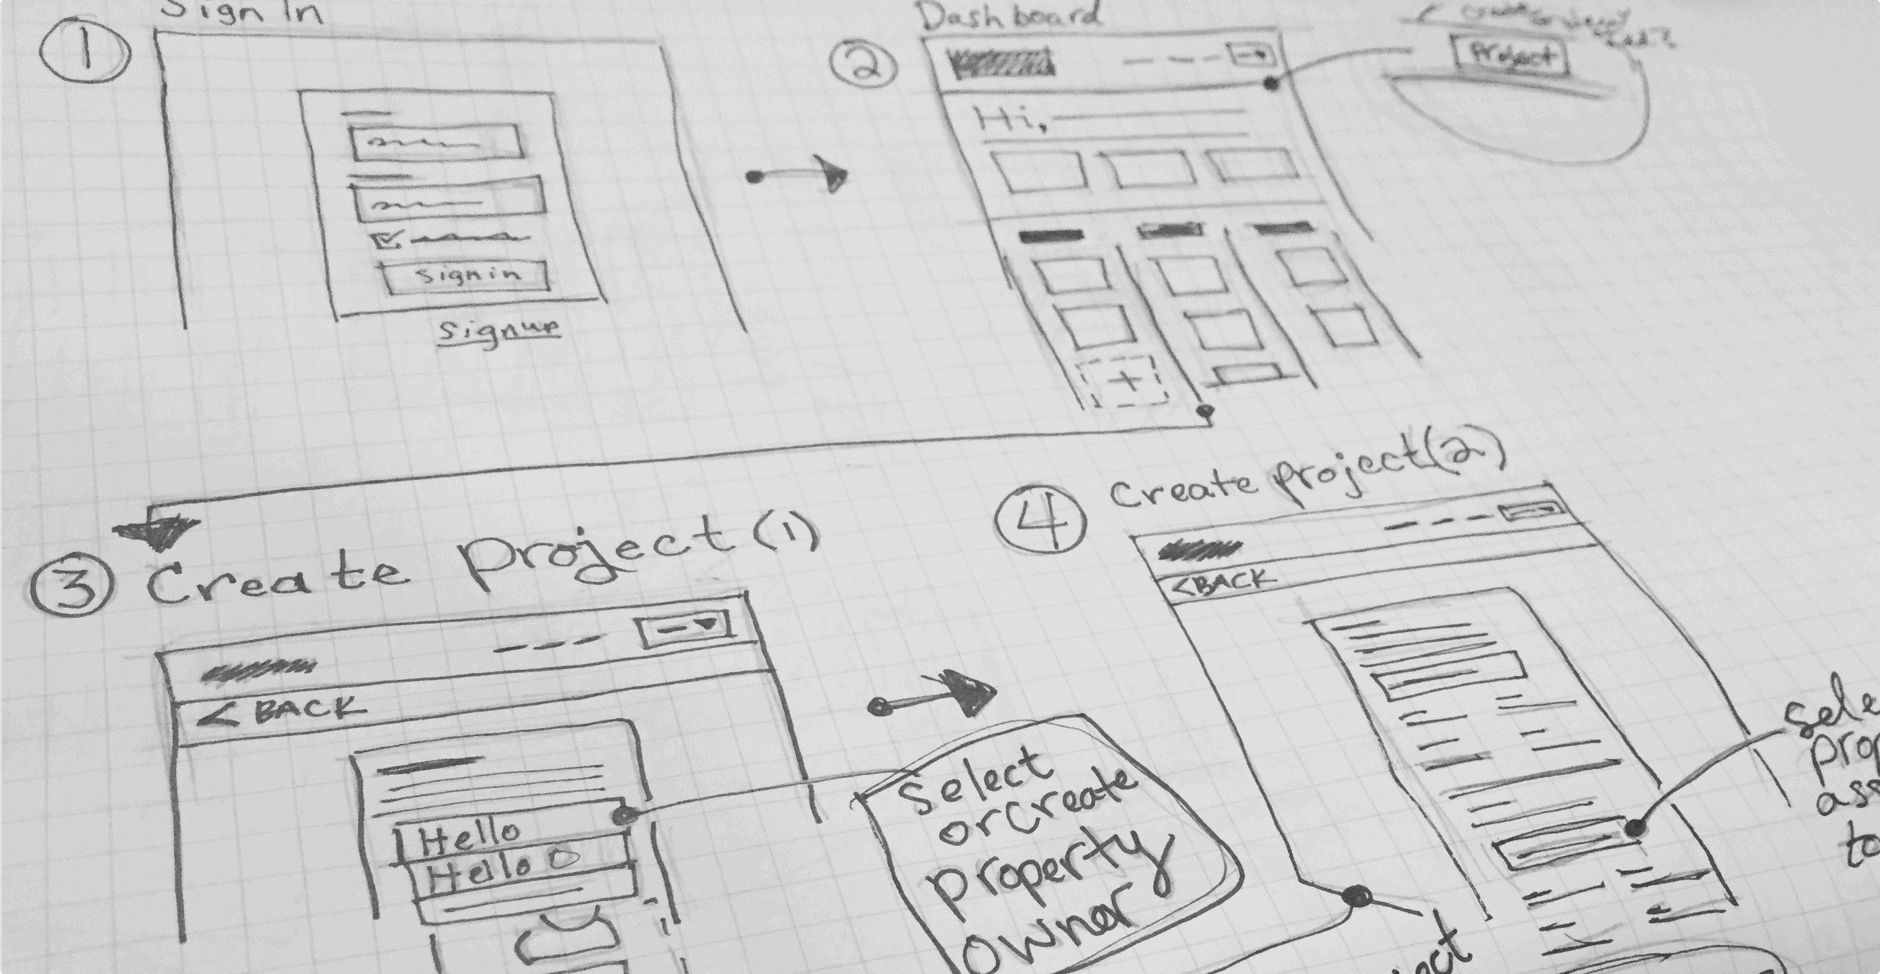 1
Sign In
sign in
signup
2
Dashboard
Hi,
Project
3
Create project (1)
< BACK
Hello
Hello
Select
or create
property
owner
4
Create project (2)
< BACK